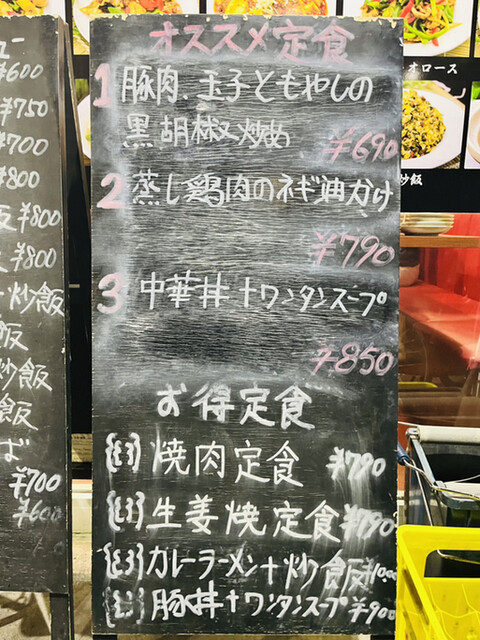 ¥600
¥750
¥700
¥800
飯 ¥800
¥800
炒飯
飯
炒飯
飯
ば
¥700
¥600
オロース
炒飯
オススメ定食
1 豚肉、玉子ともやしの
黒胡椒炒め ¥690
2 蒸し鶏肉のネギ油かけ
¥790
3 中華丼+ワンタンスープ
¥850
お得定食
焼肉定食 ¥790
生姜焼定食 ¥790
カレーラーメン+炒飯 ¥1000
豚丼+ワンタンスープ ¥900